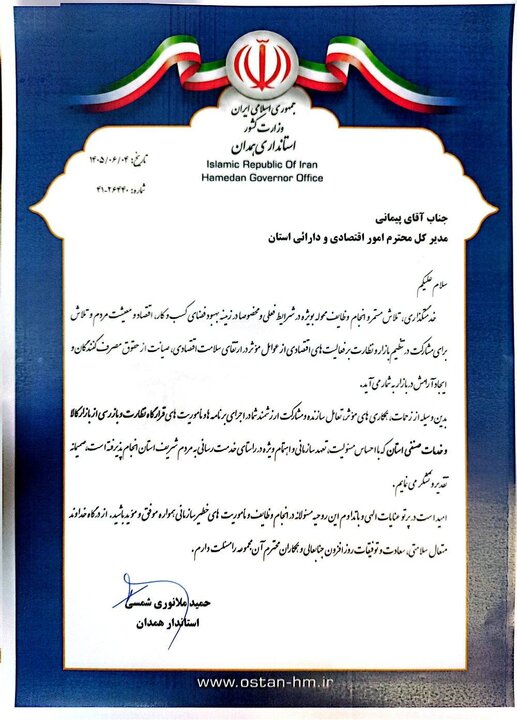 جمهوری اسلامی ایران
وزارت کشور
استانداری همدان
Islamic Republic Of Iran
Hamedan Governor Office
تاریخ: ۱۴۰۵/۰۶/۰۴
شماره: ۴۱-۲۶۴۴۰
جناب آقای پیمانی
مدیر کل محترم امور اقتصادی و دارائی استان
سلام علیکم
خدمتگذاری، تلاش مستمر و انجام وظایف محوله بویژه در شرایط فعلی و مخصوصا در زمینه بهبود فضای کسب و کار، اقتصاد و معیشت مردم و تلاش
برای مشارکت در تنظیم بازار و نظارت بر فعالیت های اقتصادی از عوامل مؤثر در ارتقای سلامت اقتصادی، صیانت از حقوق مصرف کنندگان و
ایجاد آرامش در بازار به شمار می آید.
بدین وسیله از زحمات، همکاری های مؤثر، تعامل سازنده و مشارکت ارزشمند شما در اجرای برنامه ها و ماموریت های قرارگاه نظارت و بازرسی از بازار کالا
و خدمات صنفی استان که با احساس مسئولیت، تعهد سازمانی و اهتمام ویژه در راستای خدمت رسانی به مردم شریف استان انجام پذیرفته است، صمیمانه
تقدیر و تشکر می نمایم.
امید است در پرتو عنایات الهی و با تداوم این روحیه مسئولانه در انجام وظایف و ماموریت های خطیر سازمانی همواره موفق و مؤید باشید. از درگاه خداوند
متعال سلامتی، سعادت و توفیقات روز افزون جنابعالی و همکاران محترم آن مجموعه را مسئلت دارم.
حمید ملانوری شمسی
استاندار همدان
www.ostan-hm.ir